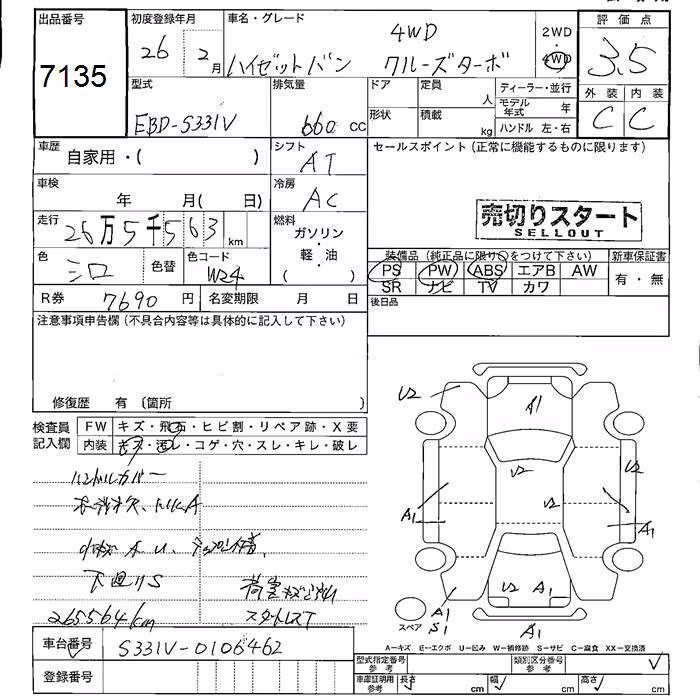 出品番号
7135
初度登録年月
26年 2月
車名・グレード
ハイゼットバン
4WD
クルーズターボ
2WD
・
4WD
評価点
3.5
型式
EBD-S331V
排気量
660 cc
ドア
形状
定員
人
積載
kg
ディーラー・並行
モデル年式 年
ハンドル 左・右
外装 内装
C C
車歴
自家用・( )
シフト
AT
セールスポイント (正常に機能するものに限ります)
車検
年 月( 日)
冷房
AC
売切りスタート
SELLOUT
走行
26万5千563 km
燃料
ガソリン
・
軽・油
( )
色
シロ
色替
色コード
W24
装備品 (純正品に限り○をつけて下さい)
PS PW ABS エアB AW
SR ナビ TV カワ
新車保証書
有・無
R券 7690 円
名変期限 月 日
後日品
注意事項申告欄 (不具合内容等は具体的に記入して下さい)
修復歴 有 〔箇所 〕
検査員
記入欄
FW キズ・飛石・ヒビ割・リペア跡・X要
内装 キズ・汚レ・コゲ・穴・スレ・キレ・破レ
ハンドルカバー
下廻りS
265564km
スタートLST
車台番号
S331V-0106462
登録番号
U2
A1
U2
U2
U2
A1
A1
U2 A1
A1
S1
A1
スペア
A-キズ E-エクボ U-凹み W-補修跡 S-サビ C-腐食 XX-交換済
型式指定番号
参考
類別区分番号
参考
車庫証明用
参考
長さ cm
幅 cm
高さ cm